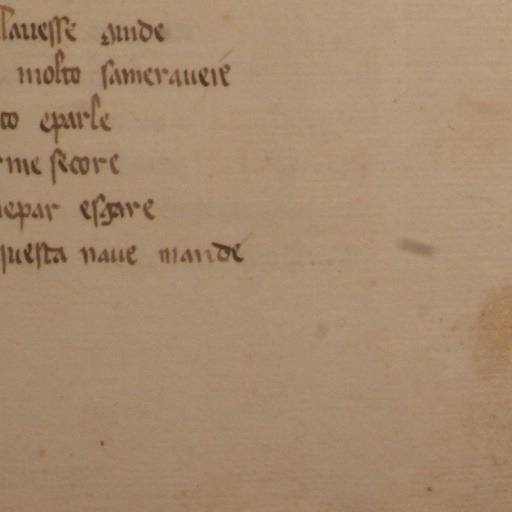 lauesse guide
molto sameraueie
to eparle
me secore
epar esgare
questa naue mande